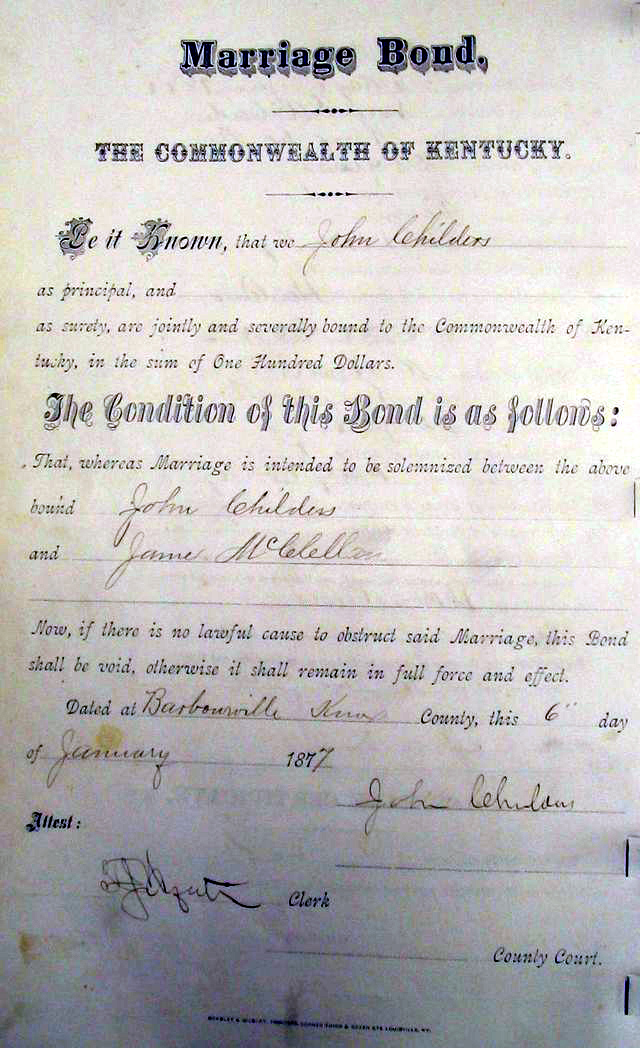 Marriage Bond.
THE COMMONWEALTH OF KENTUCKY.
Be it Known, that we John Childers
as principal, and
as surety, are jointly and severally bound to the Commonwealth of Ken-
tucky, in the sum of One Hundred Dollars.
The Condition of this Bond is as follows:
That, whereas Marriage is intended to be solemnized between the above
bound John Childers
and Jane McClellan
Now, if there is no lawful cause to obstruct said Marriage, this Bond
shall be void, otherwise it shall remain in full force and effect.
Dated at Barbourville Knox County, this 6" day
of January 1877
John Childers
Attest:
Clerk
County Court.
BRADLEY & GILBERT, PRINTERS, CORNER THIRD & GREEN STS. LOUISVILLE, KY.